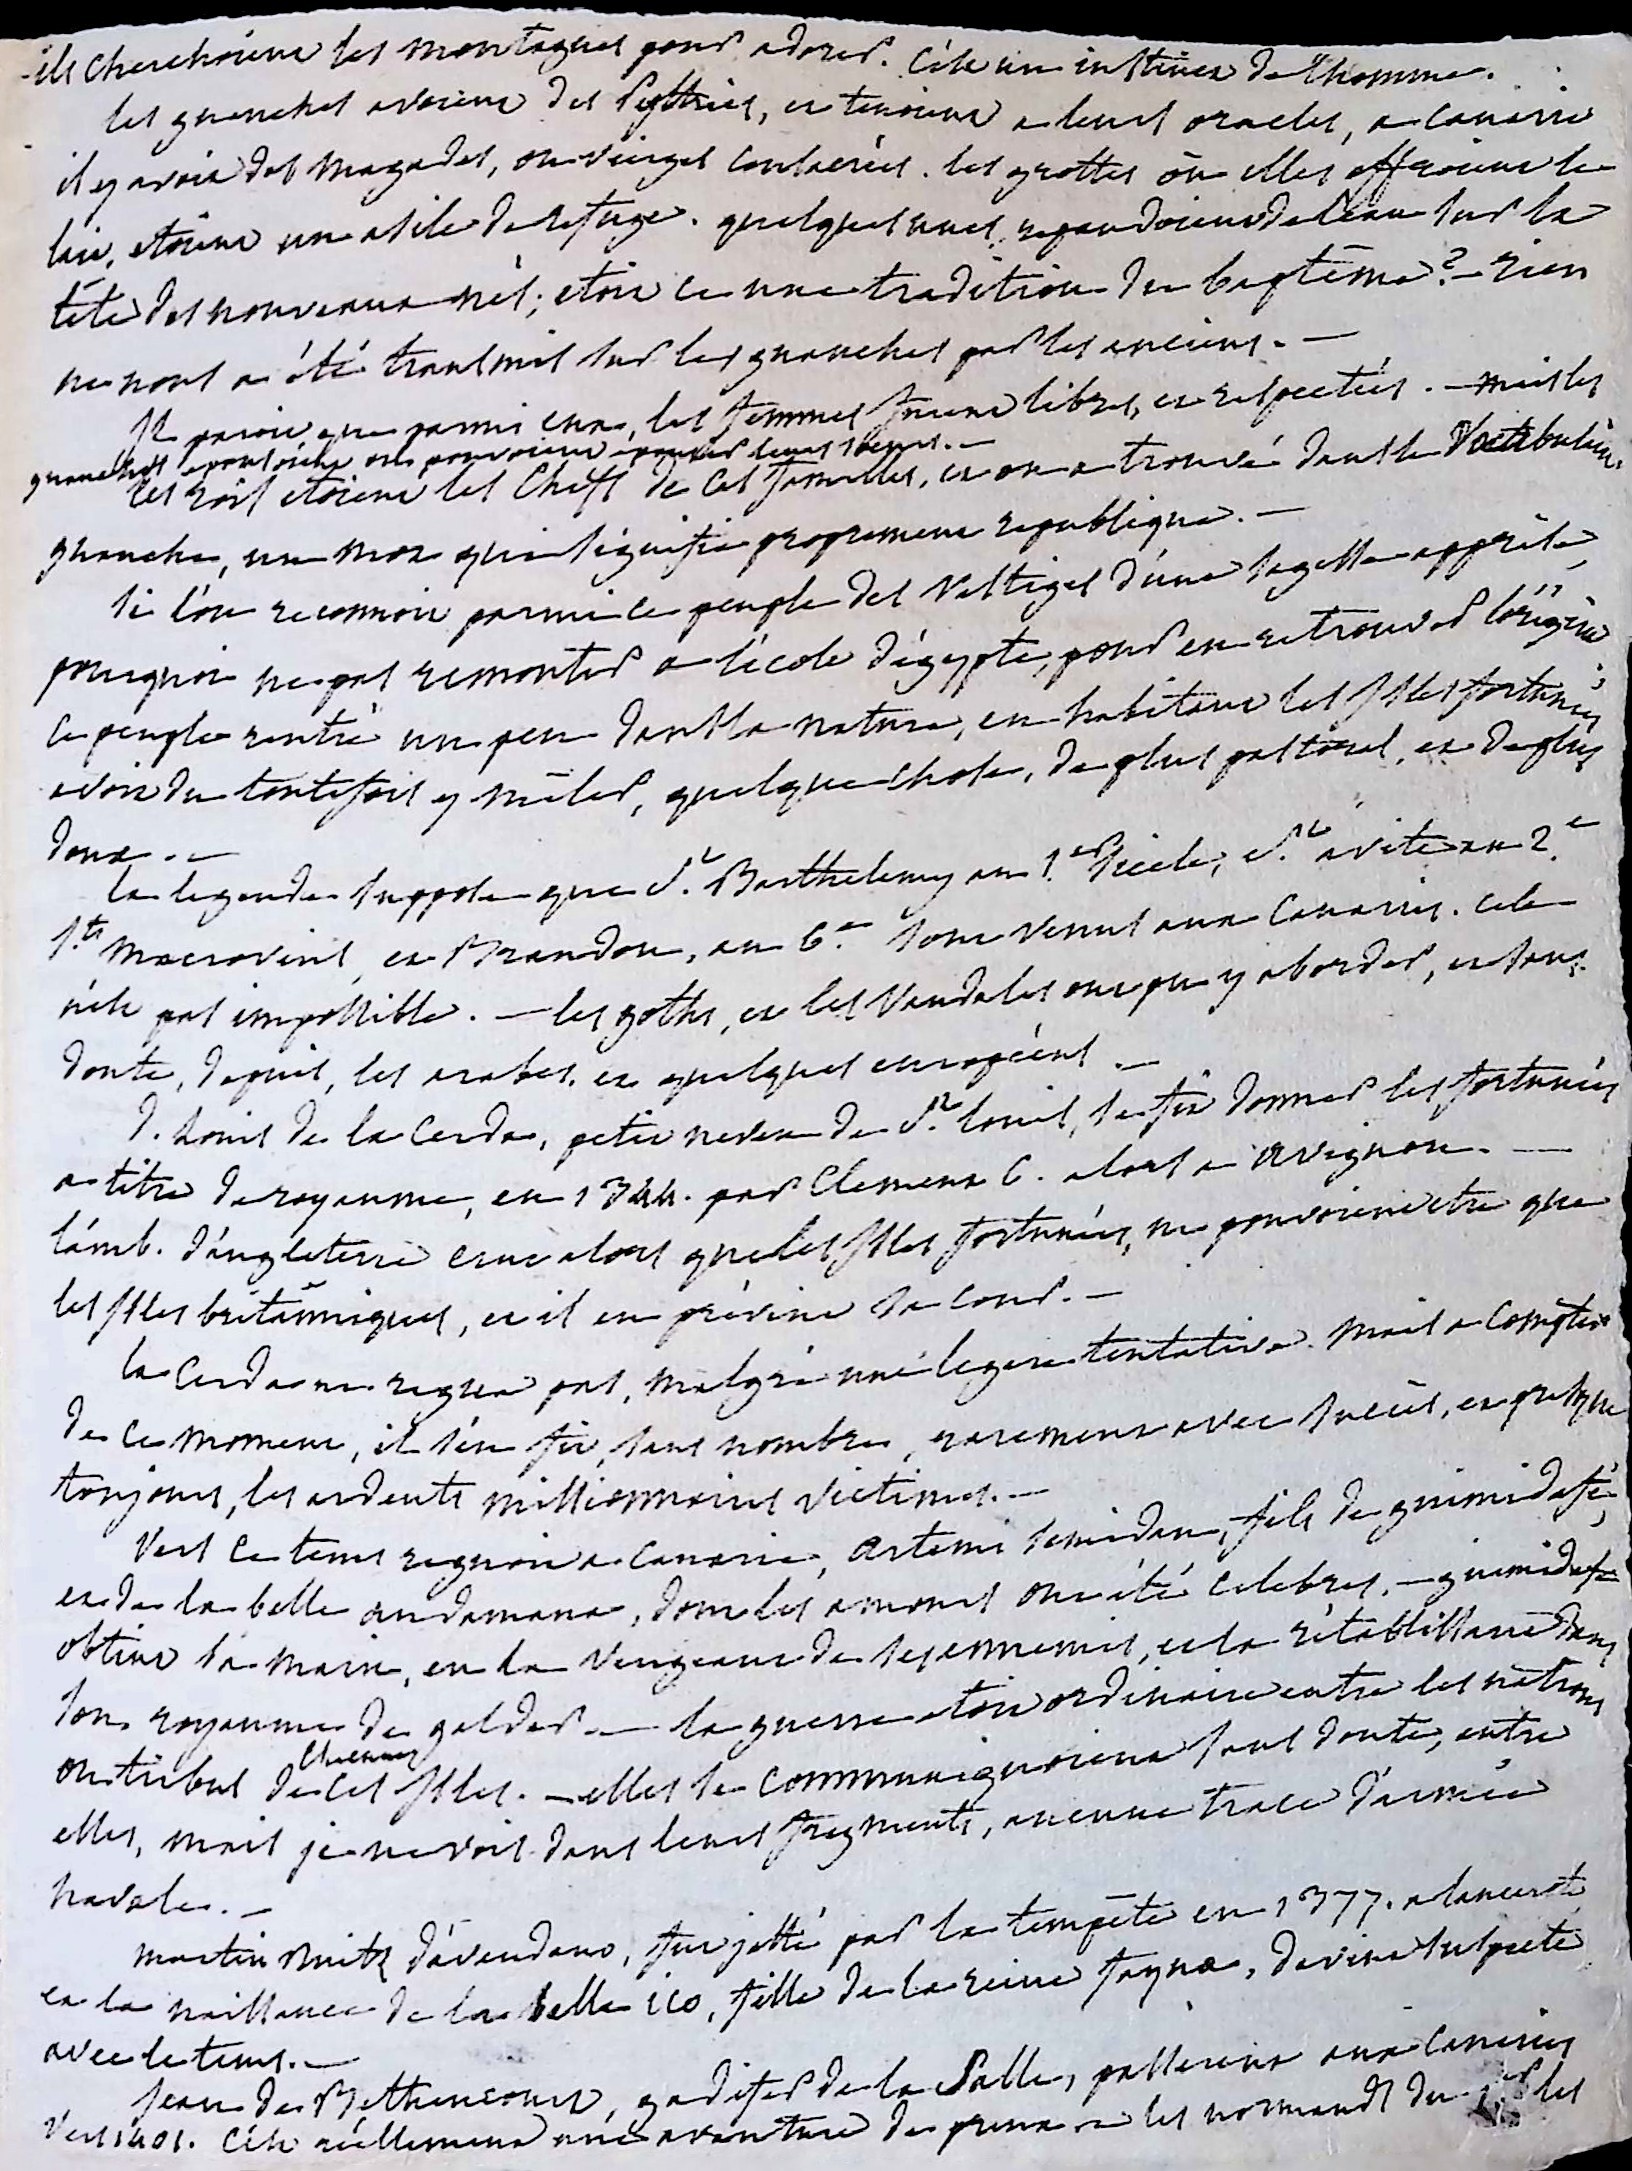 ils cherchoient les montagnes pour adorer. C'est un instinct de l'homme.
les guanches avoient des Pythies, et tenoient a leurs oracles, a Canarie
il y avoit des magades, ou vierges consacrées. les grottes où elles offroient le
lait, etoient un asile de refuge. quelques unes, repandoient de l'eau sur la
tête des nouveaux nés; etoit ce une tradition du baptême? – rien
ne nous a été transmis sur les guanches par les anciens. –
Il paroit, que parmi eux, les femmes furent libres, et respectées. – mais les
guanches epousoient ou pouvoient epouser leurs soeurs. –
les rois etoient les chefs de ces familles, et on a trouvé dans le Vocabulaire
guanche, un mot qui signifie proprement republique. –
si l'on reconnoit parmi ce peuple des vestiges d'une sagesse apprise,
pourquoi ne pas remonter a l'école d'égypte, pour en retrouver l'origine
ce peuple rentré un peu dans la nature, en habitant les Isles fortunées
avoit du toutefois y mêler, quelque chose, de plus pastoral, et de plus
doux. –
la legende suppose que St. Barthelemy au 1.er siecle, St. avite au 2.e
Sts. Macrovius, et Brandon, au 6.e sont venus aux Canaries. cela
n'est pas impossible. – les goths, et les Vandales ont pu y aborder, et sans
doute, depuis, les arabes. et quelques européens –
D. Louis de la Cerda, petit neveu de St. Louis, se fit donner les fortunées
a titre de royaume, en 1344. par Clement 6. alors a Avignon. –
l'amb. d'angleterre crut alors que les Isles fortunées, ne pouvoient etre que
les Isles britanniques, et il en prévint sa cour. –
la Cerda ne regna pas, malgré une legere tentative. Mais a compter
de ce moment, il s'en fit, sans nombre, rarement avec succès, et presque
toujours, les ardents missionnaires victimes. –
Vers ce tems regnoit a Canarie, Artemi Semidan, fils de guimidafé,
et de la belle andamana, dont les amours ont été celebres. – guimidafé
obtint sa main, en la vengeant de ses ennemis, et la rétablissant dans
son royaume de galdar – la guerre etoit ordinaire entre les nations
ou tribus de chacune
ces Isles. – elles se communiquoient sans doute, entre
elles, mais je ne vois dans leurs fragments, aucune trace d'armée
navale. –
Martin Ruitz d'avendano, fut jetté par la tempête en 1377. a lancerote
et la naissance de la belle ico, fille de la reine fayna, devint suspecte
avec le tems. –
Jean de Bethencourt, gadifer de la Salle, passerent aux Canaries
vers 1401. C'est réellement une avanture de les normands du les